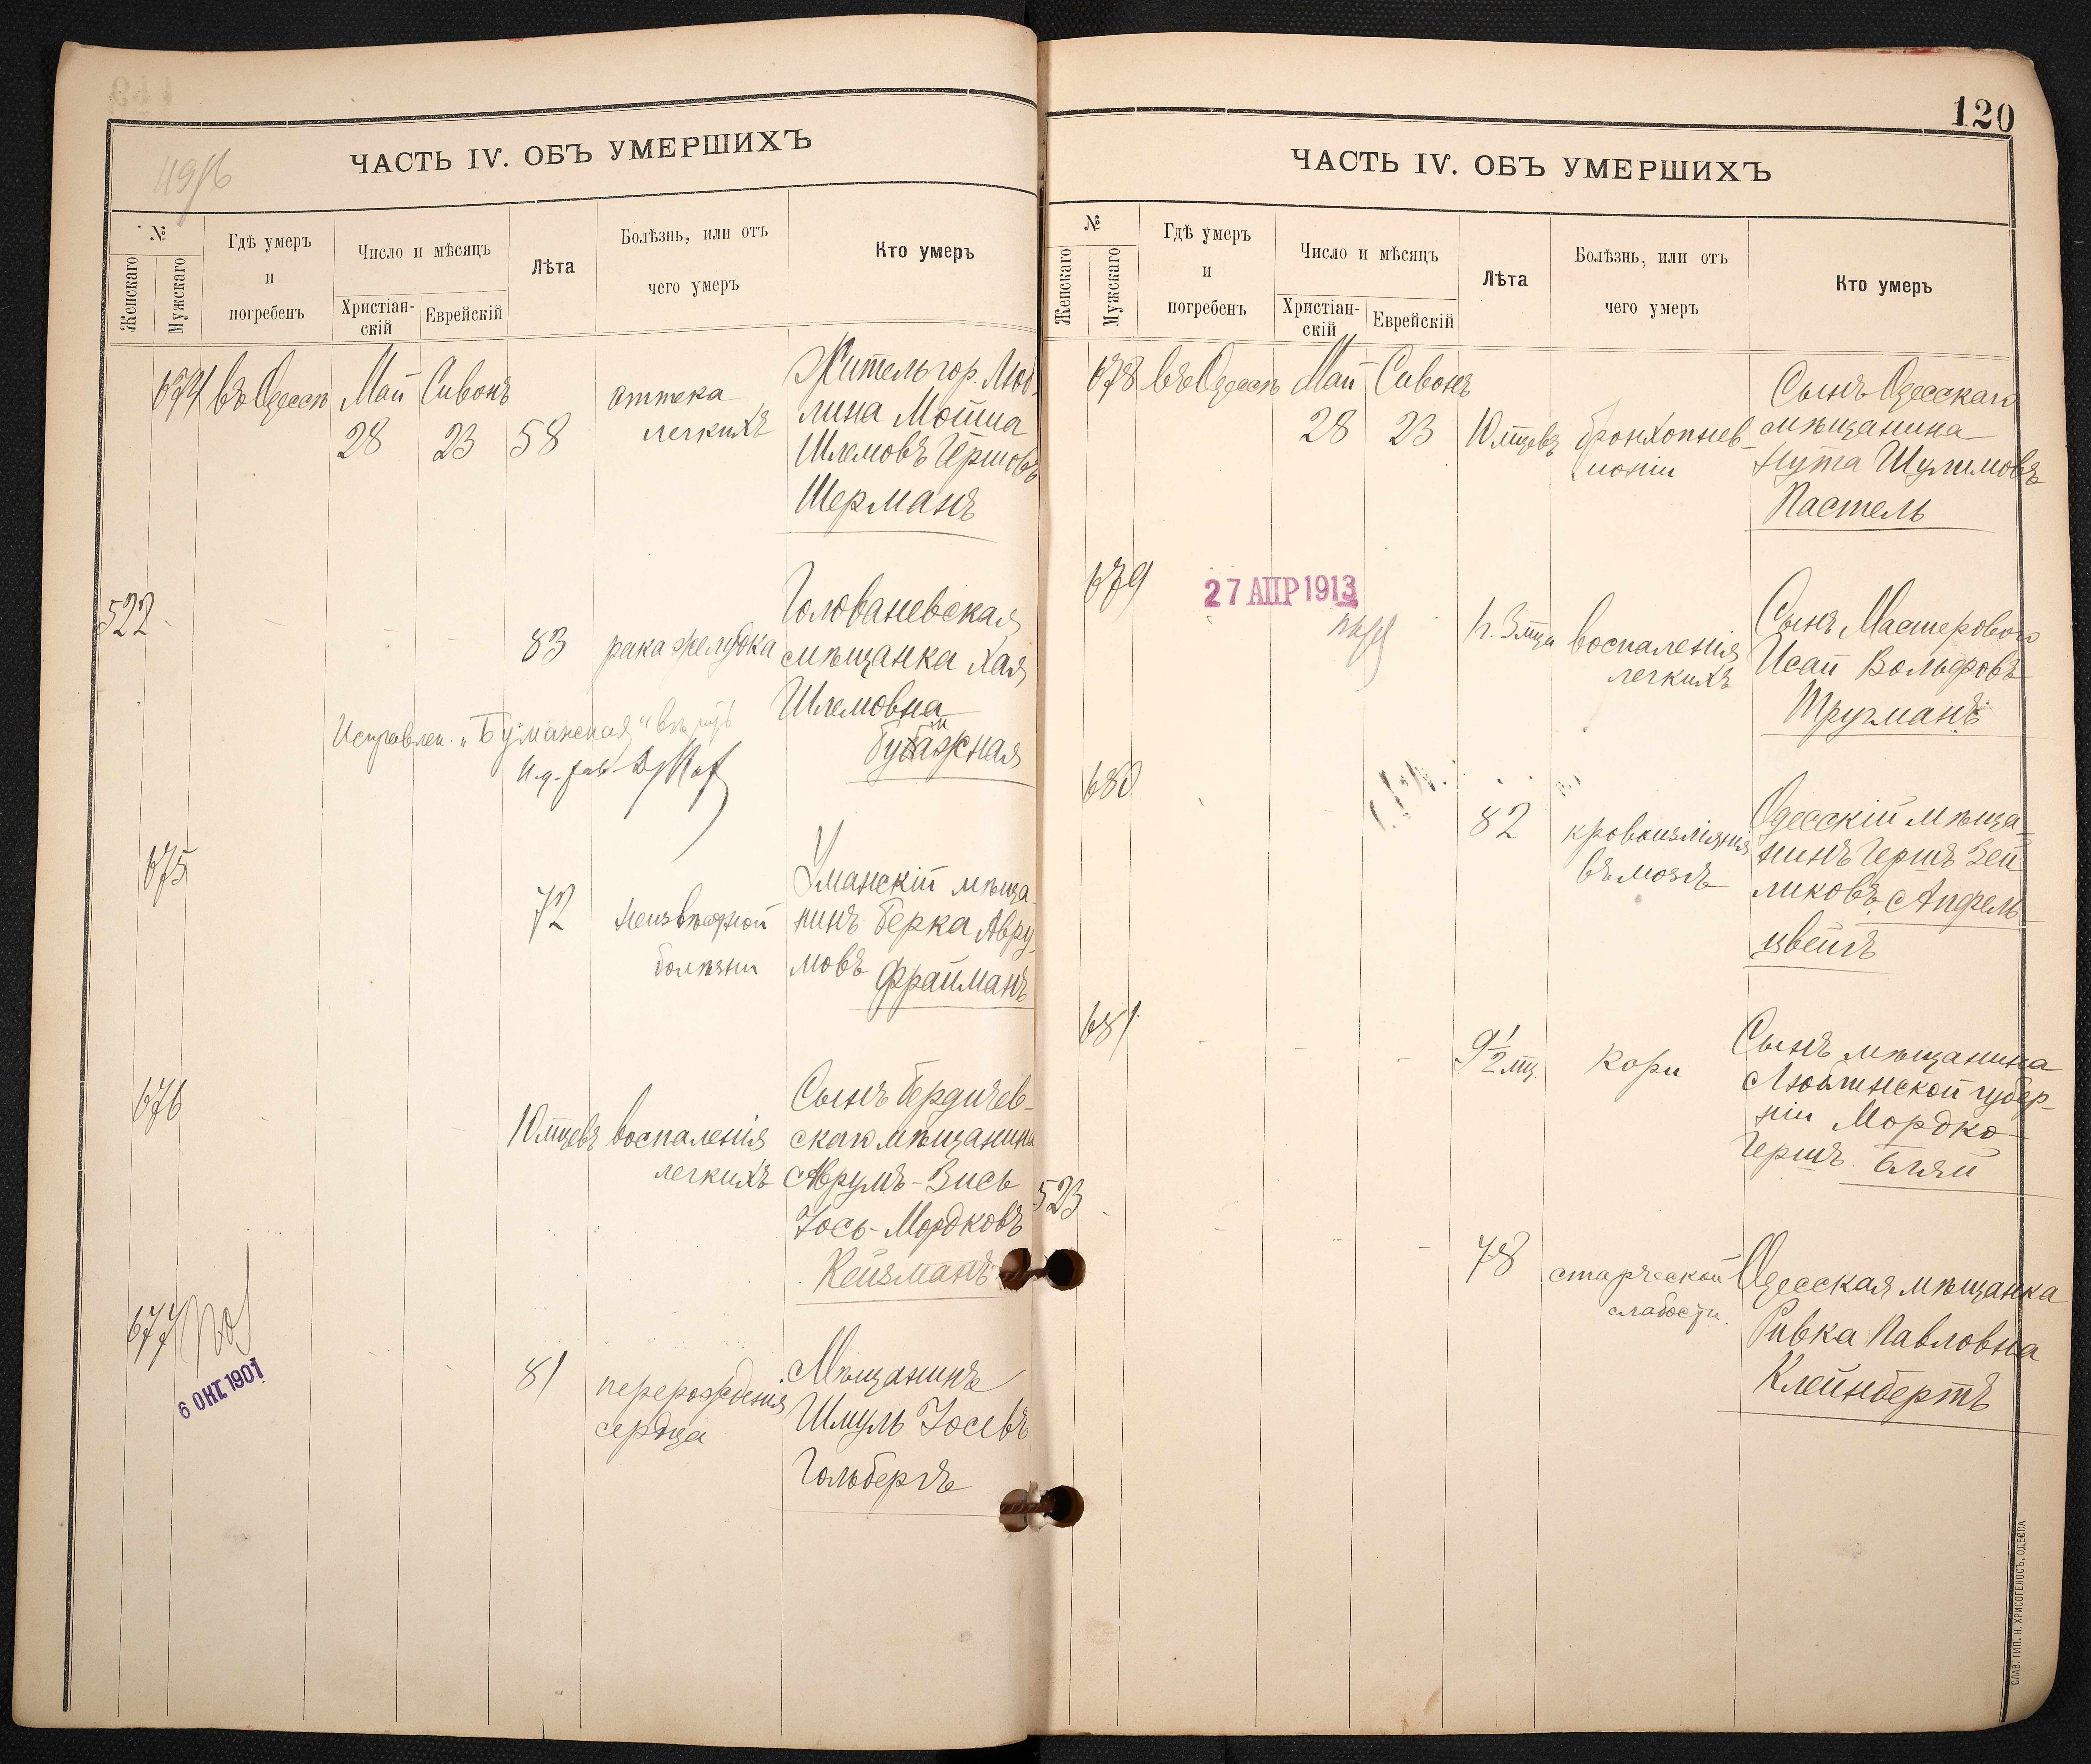 119/б
ЧАСТЬ IV. ОБЪ УМЕРШИХЪ
№
Женскаго
Мужскаго
Гдѣ умеръ
и
погребенъ
Число и мѣсяцъ
Христіан-
скій
Еврейскій
Лѣта
Болѣзнь, или отъ
чего умеръ
Кто умеръ
674 въ Одессѣ Май Сивонъ
28 23 58
отека
легкихъ
Житель гор. Люб-
лина Мошка
Шлемовъ Гершовъ
Шерманъ
522
83 рака желудка
Голованевская
мѣщанка Хая
Шлемовна
Бумажная
Исправлен. „Буманская“ вѣрно
675
72 неизвѣстной
болѣзни
Уманскій мѣща-
нинъ Берка Авру-
мовъ Фрайманъ
676
10 мцевъ воспаленія
легкихъ
Сынъ Бердичев-
скаго мѣщанина
Аврумъ-Зись
Іось-Мордковъ
Кейзманъ
677
6 ОКТ 1901
81 перерожденія
сердца
Мѣщанинъ
Шмуль Іосевъ
Гольбергъ
120
ЧАСТЬ IV. ОБЪ УМЕРШИХЪ
№
Женскаго
Мужскаго
Гдѣ умеръ
и
погребенъ
Число и мѣсяцъ
Христіан-
скій
Еврейскій
Лѣта
Болѣзнь, или отъ
чего умеръ
Кто умеръ
678 въ Одессѣ Май Сивонъ
28 23 10 мцевъ бронхопнев-
моніи
Сынъ Одесскаго
мѣщанина
Нута Шулимовъ
Пастель
679
27 АПР 1913
3 мца воспаленія
легкихъ
Сынъ Мастерового
Исай Вольфовъ
Тругманъ
680
82 кровоизліянія
въ мозгъ
Одесскій мѣща-
нинъ Гершъ Зей-
ликовъ Апфель-
цвейгъ
681
9 1/2 мц. Кори
Сынъ мѣщанина
Люблинской губер-
ніи Мордко-
Гершъ Бляй
523
78 старческой
слабости.
Одесская мѣщанка
Ривка Павловна
Клейнбертъ
СЛАВ. ТИП. Н. ХРИСОГЕЛОСЪ, ОДЕССА